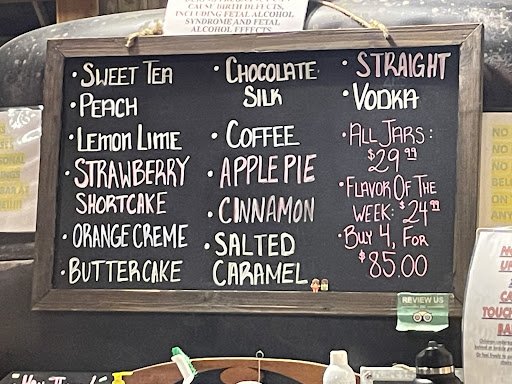 CAUSE BIRTH DEFECTS,
INCLUDING FETAL ALCOHOL
SYNDROME AND FETAL
ALCOHOL EFFECTS
• SWEET TEA
• PEACH
• LEMON LIME
• STRAWBERRY
SHORTCAKE
• ORANGE CREME
• BUTTERCAKE
• CHOCOLATE
SILK
• COFFEE
• APPLE PIE
• CINNAMON
• SALTED
CARAMEL
• STRAIGHT
• VODKA
• ALL JARS:
$29.99
• FLAVOR OF THE
WEEK: $24.99
• BUY 4, FOR
$85.00
REVIEW US